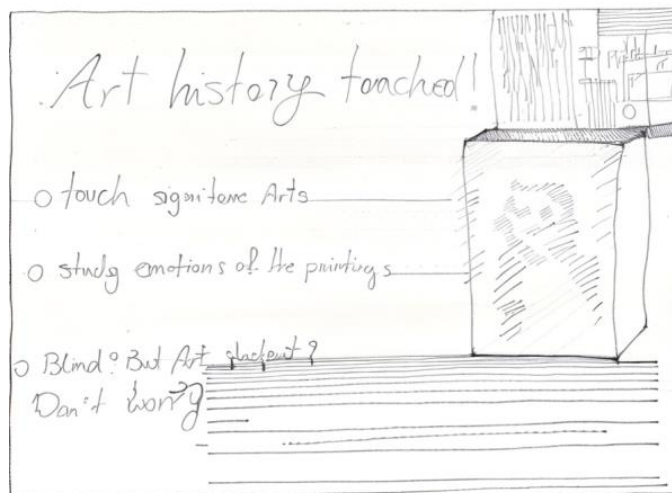 Art history touched!
touch Arts
study emotions of the paintings
Blind? But Art student?
Don't worry